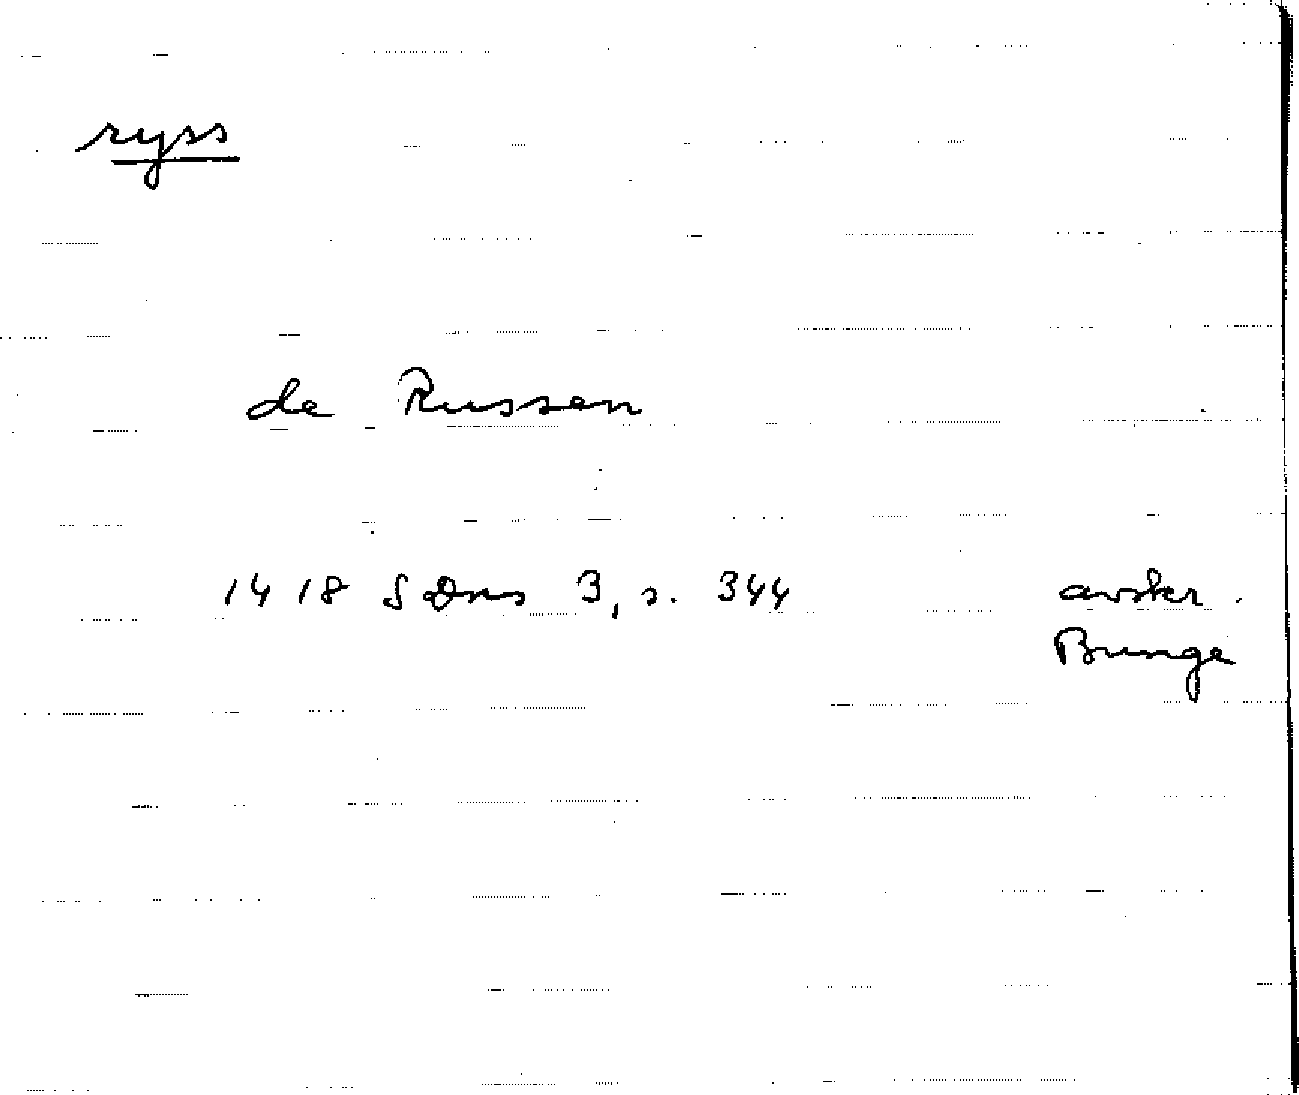 ryss
de Russen
1418 SDns 3, s. 344 avskr.
Bunge